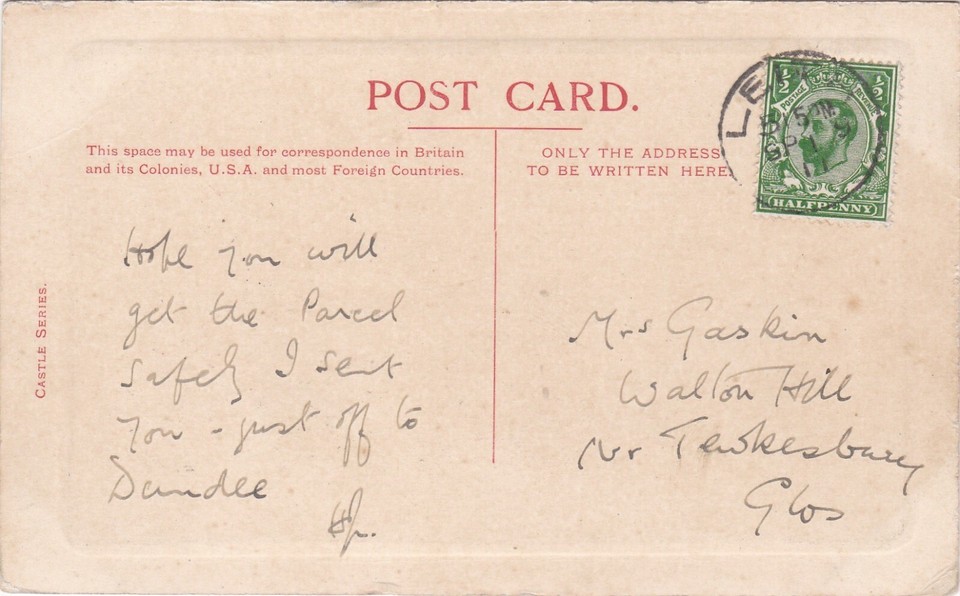 POST CARD.
This space may be used for correspondence in Britain
and its Colonies, U.S.A. and most Foreign Countries.
ONLY THE ADDRESS
TO BE WRITTEN HERE
CASTLE SERIES.
½ ½
POSTAGE REVENUE
HALFPENNY
5 PM
SP 1
11
Hope you will
get the Parcel
safely I sent
you - just off to
Dundee
Mrs Gaskin
Walton Hill
Nr Tewkesbury
Glos